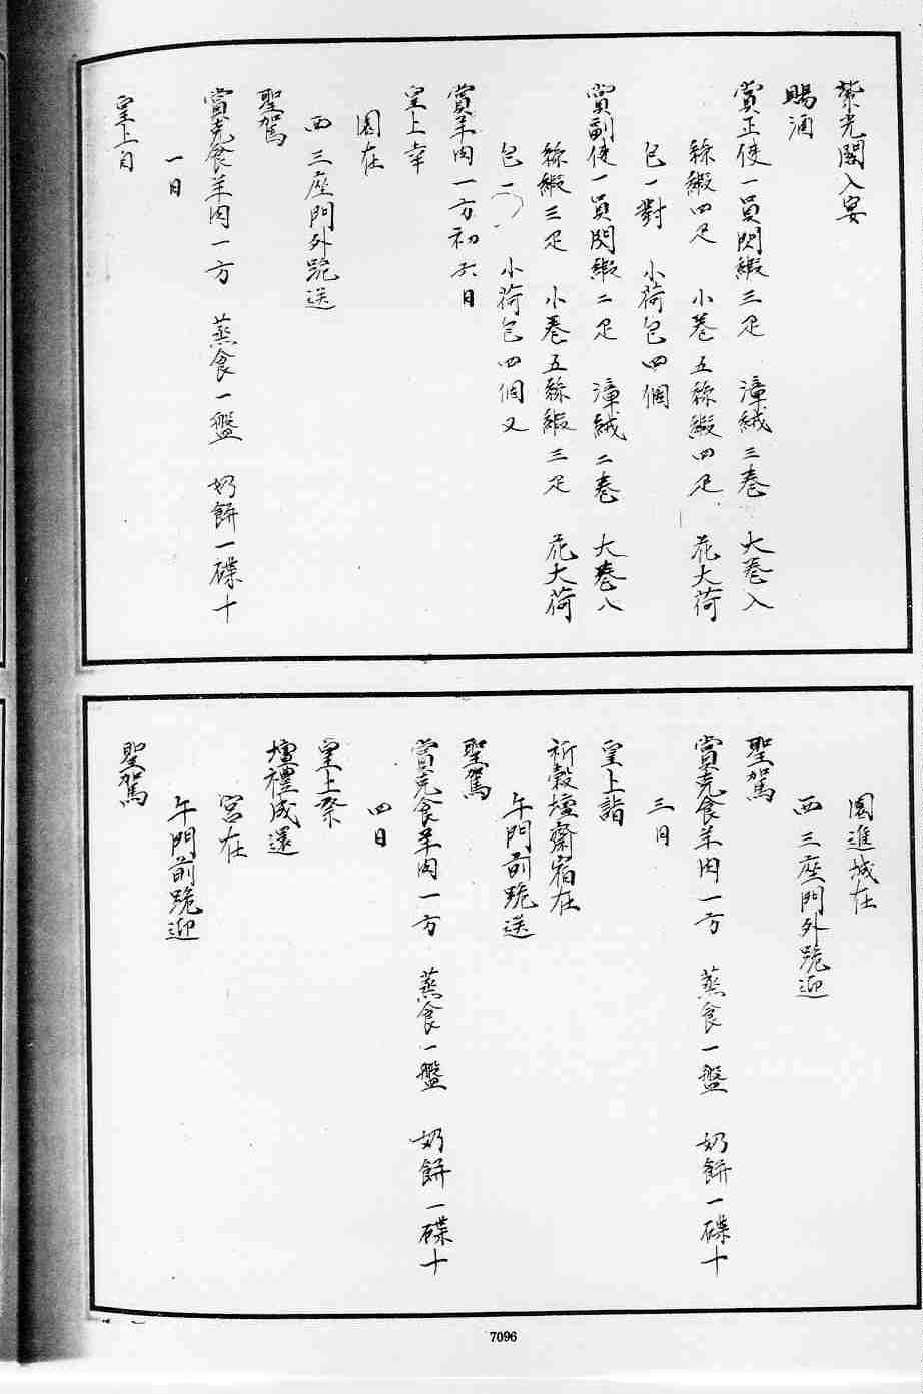 紫光閣入宴
賜酒
賞正使一員閃緞三疋 漳絨三卷 大卷八
絲緞四疋 小卷五絲緞四疋 花大荷
包一對 小荷包四個
賞副使一員閃緞二疋 漳絨二卷 大卷八
絲緞三疋 小卷五絲緞三疋 花大荷
包一 小荷包四個又
賞羊肉一方初六日
皇上幸
園在
西三座門外跪送
聖駕
賞克食羊肉一方 蒸食一盤 奶餅一碟十
一日
皇上自
園進城在
西三座門外跪迎
聖駕
賞克食羊肉一方 蒸食一盤 奶餅一碟十
三日
皇上詣
祈穀壇齋宿在
午門前跪送
聖駕
賞克食羊肉一方 蒸食一盤 奶餅一碟十
四日
皇上祭
壇禮成還
宮在
午門前跪迎
聖駕
7096